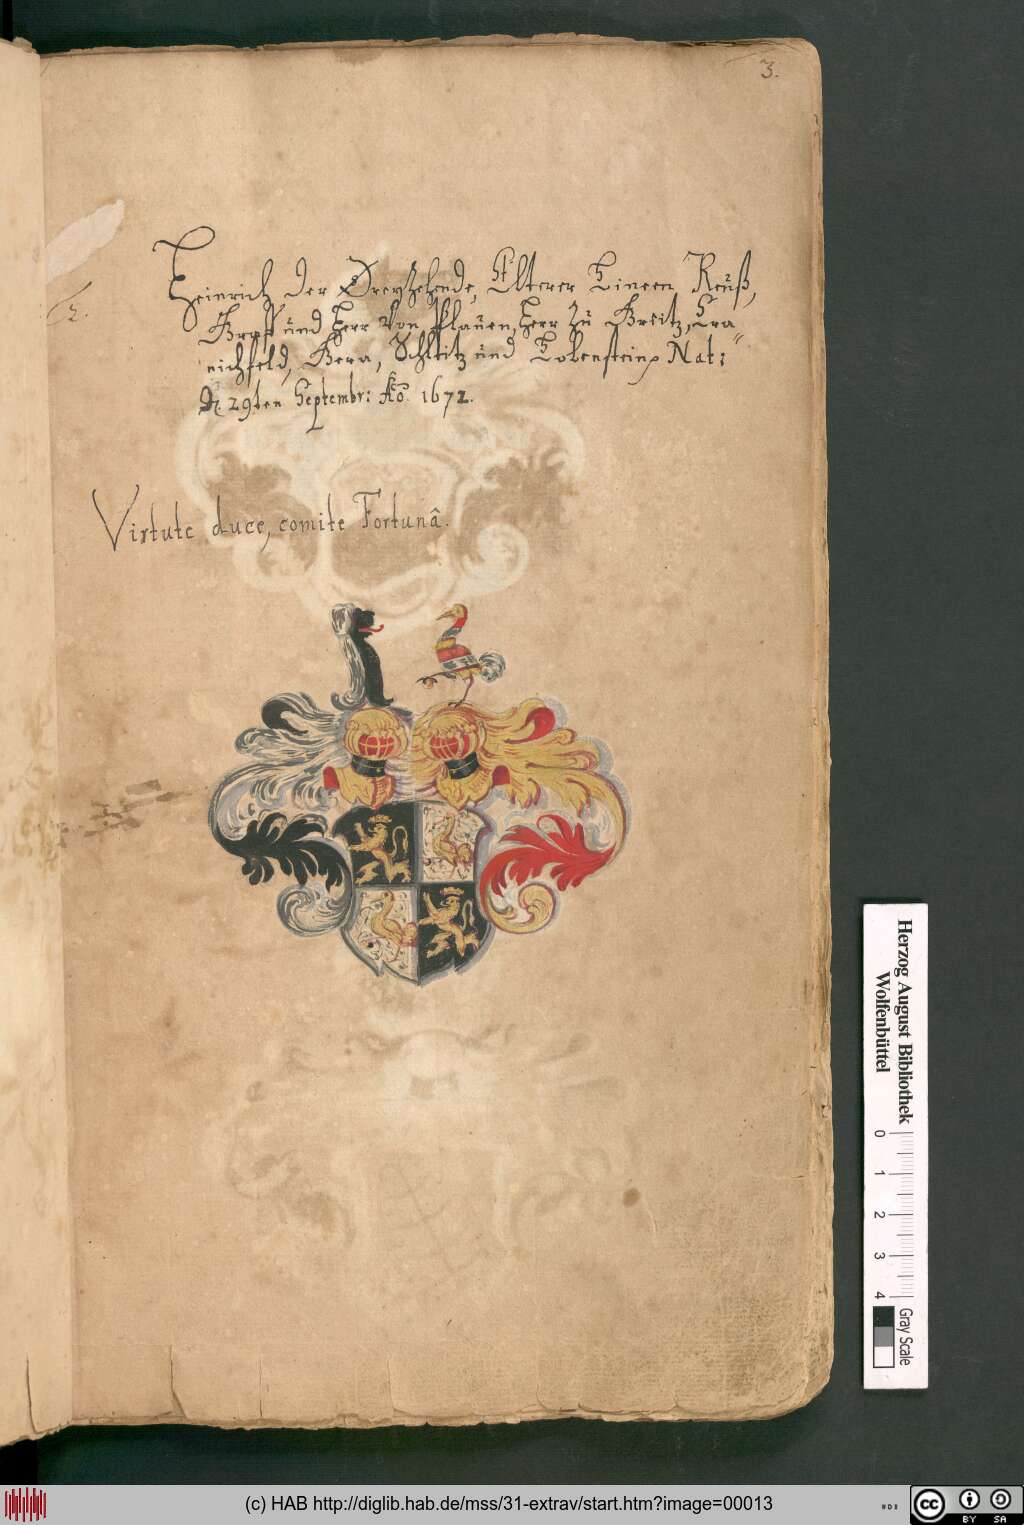 3.
2.
Heinrich der Dreyzehende, Älterer Lineen Reüß,
Graff und Herr von Plaüen, Herr zü Greitz, Cra-
nichfeld, Gera, Schleitz und Lobenstein, Nat:
29ten Septembr: Ao. 1672.
Virtute duce, comite Fortunâ.
Herzog August Bibliothek
Wolfenbüttel
0 1 2 3 4
Gray Scale
(c) HAB http://diglib.hab.de/mss/31-extrav/start.htm?image=00013
cc BY SA